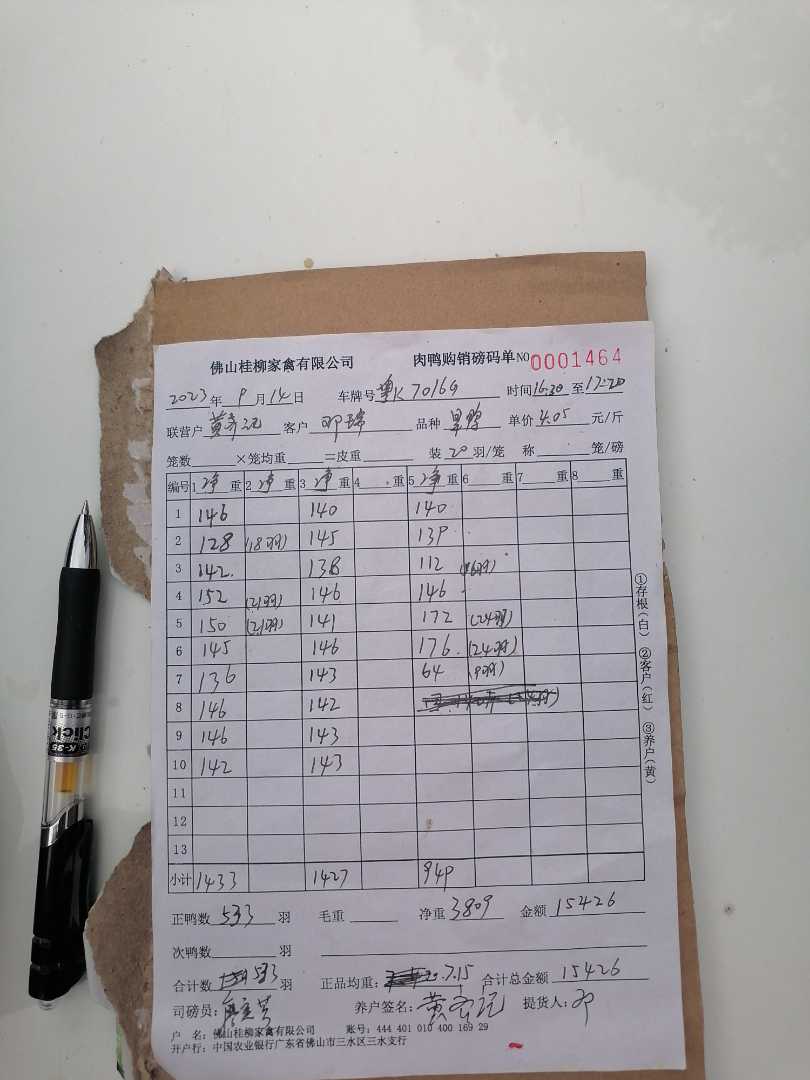 佛山桂柳家禽有限公司 肉鸭购销磅码单 NO 0001464
2023年 9月14日 车牌号 粤K70169 时间16:20至17:20
联营户 客户 邓锦 品种 单价 4.05 元/斤
笼数 ×笼均重 =皮重 装 20 羽/笼 称 笼/磅
编号 1净重 2净重 3净重 4 重 5净重 6 重 7 重 8 重
1 146 140 140
2 128 (18羽) 145 139
3 142. 138 112 (16羽)
4 152 (21羽) 146 146
5 150 (21羽) 141 172 (24羽)
6 145 146 176. (24羽)
7 136 143 64 (9羽)
8 146 142
9 146 143
10 142 143
11
12
13
小计 1433 1427 949
正鸭数 533 羽 毛重 净重 3809 金额 15426
次鸭数 羽
合计数 533 羽 正品均重: 7.15 合计总金额 15426
司磅员: 养户签名: 提货人: 邓
户 名: 佛山桂柳家禽有限公司 账号: 444 401 010 400 169 29
开户行: 中国农业银行广东省佛山市三水区三水支行
①存根(白) ②客户(红) ③养户(黄)
Click
K-35